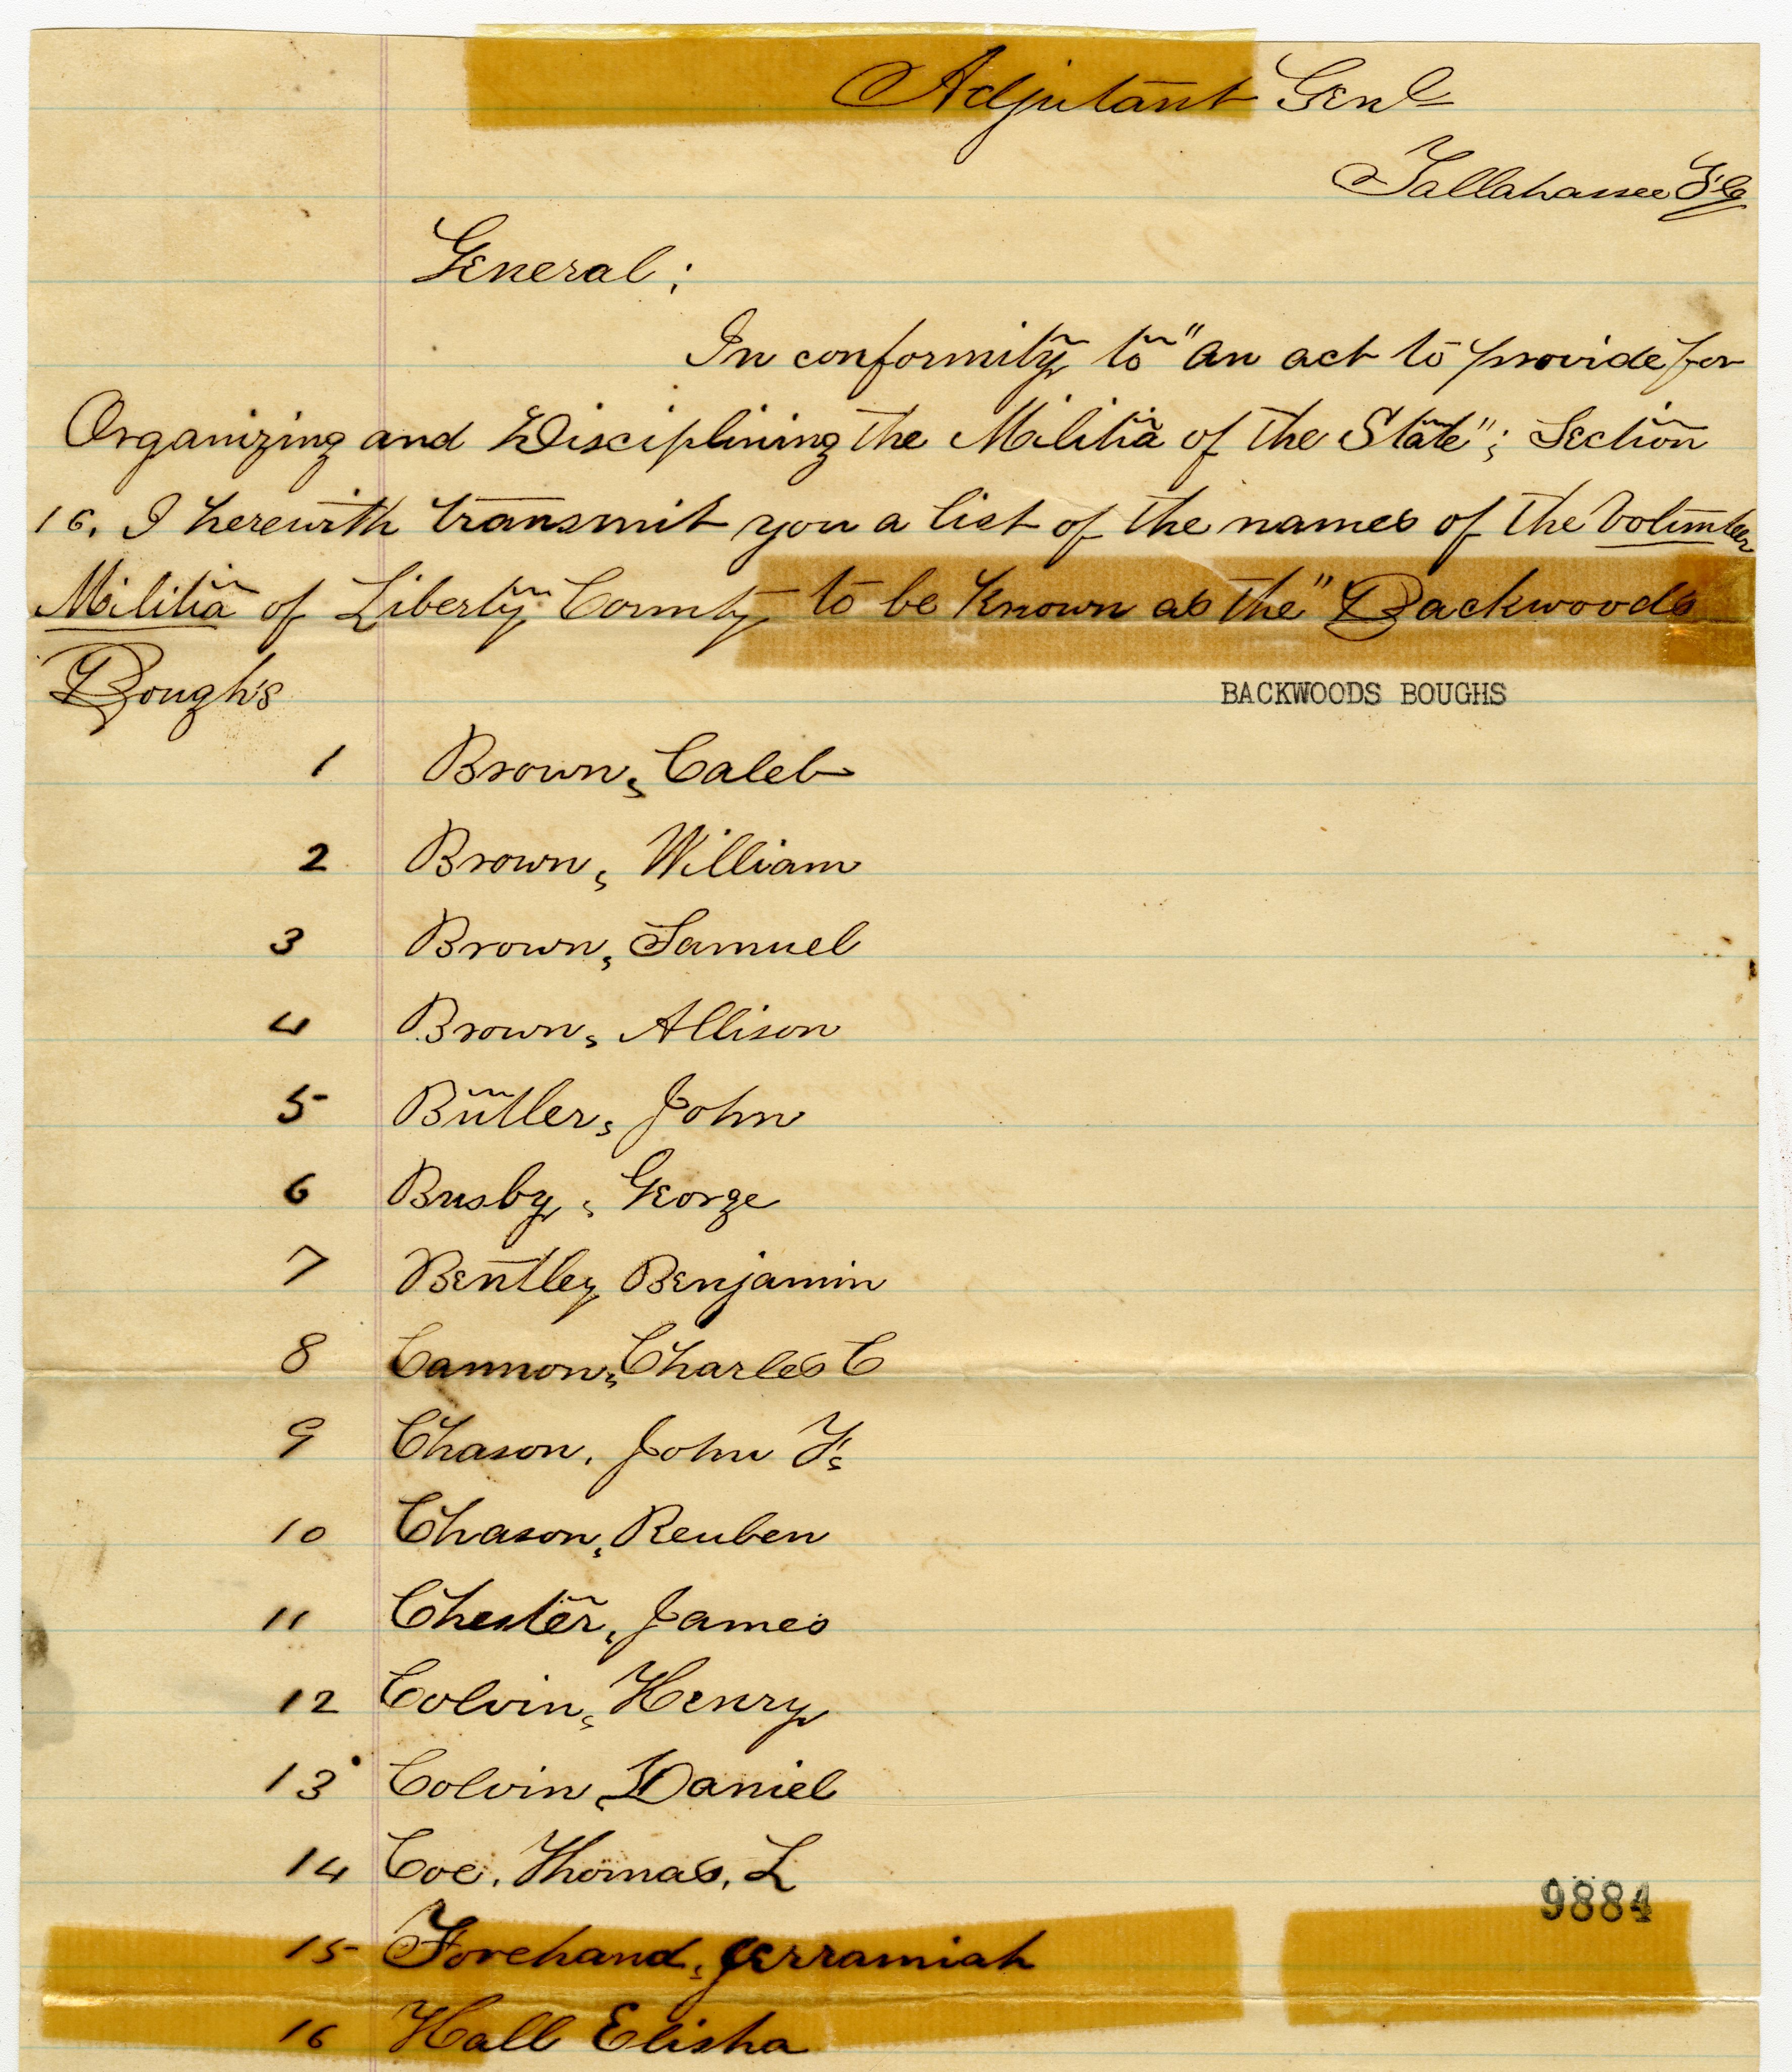 Adjutant Genl
Tallahassee Fla
General;
In conformity to "an act to provide for
Organizing and Disciplining the Militia of the State"; Section
16. I herewith transmit you a list of the names of the Volunteer
Militia of Liberty County to be known as the "Backwoods
Bough's
BACKWOODS BOUGHS
1 Brown, Caleb
2 Brown, William
3 Brown, Samuel
4 Brown, Allison
5 Butler, John
6 Busby, George
7 Bentley Benjamin
8 Cannon, Charles C
9 Chason, John F,
10 Chason, Reuben
11 Chester, James
12 Colvin, Henry
13 Colvin, Daniel
14 Coe, Thomas, L
9884
15 Forehand, Jerramiah
16 Hall Elisha